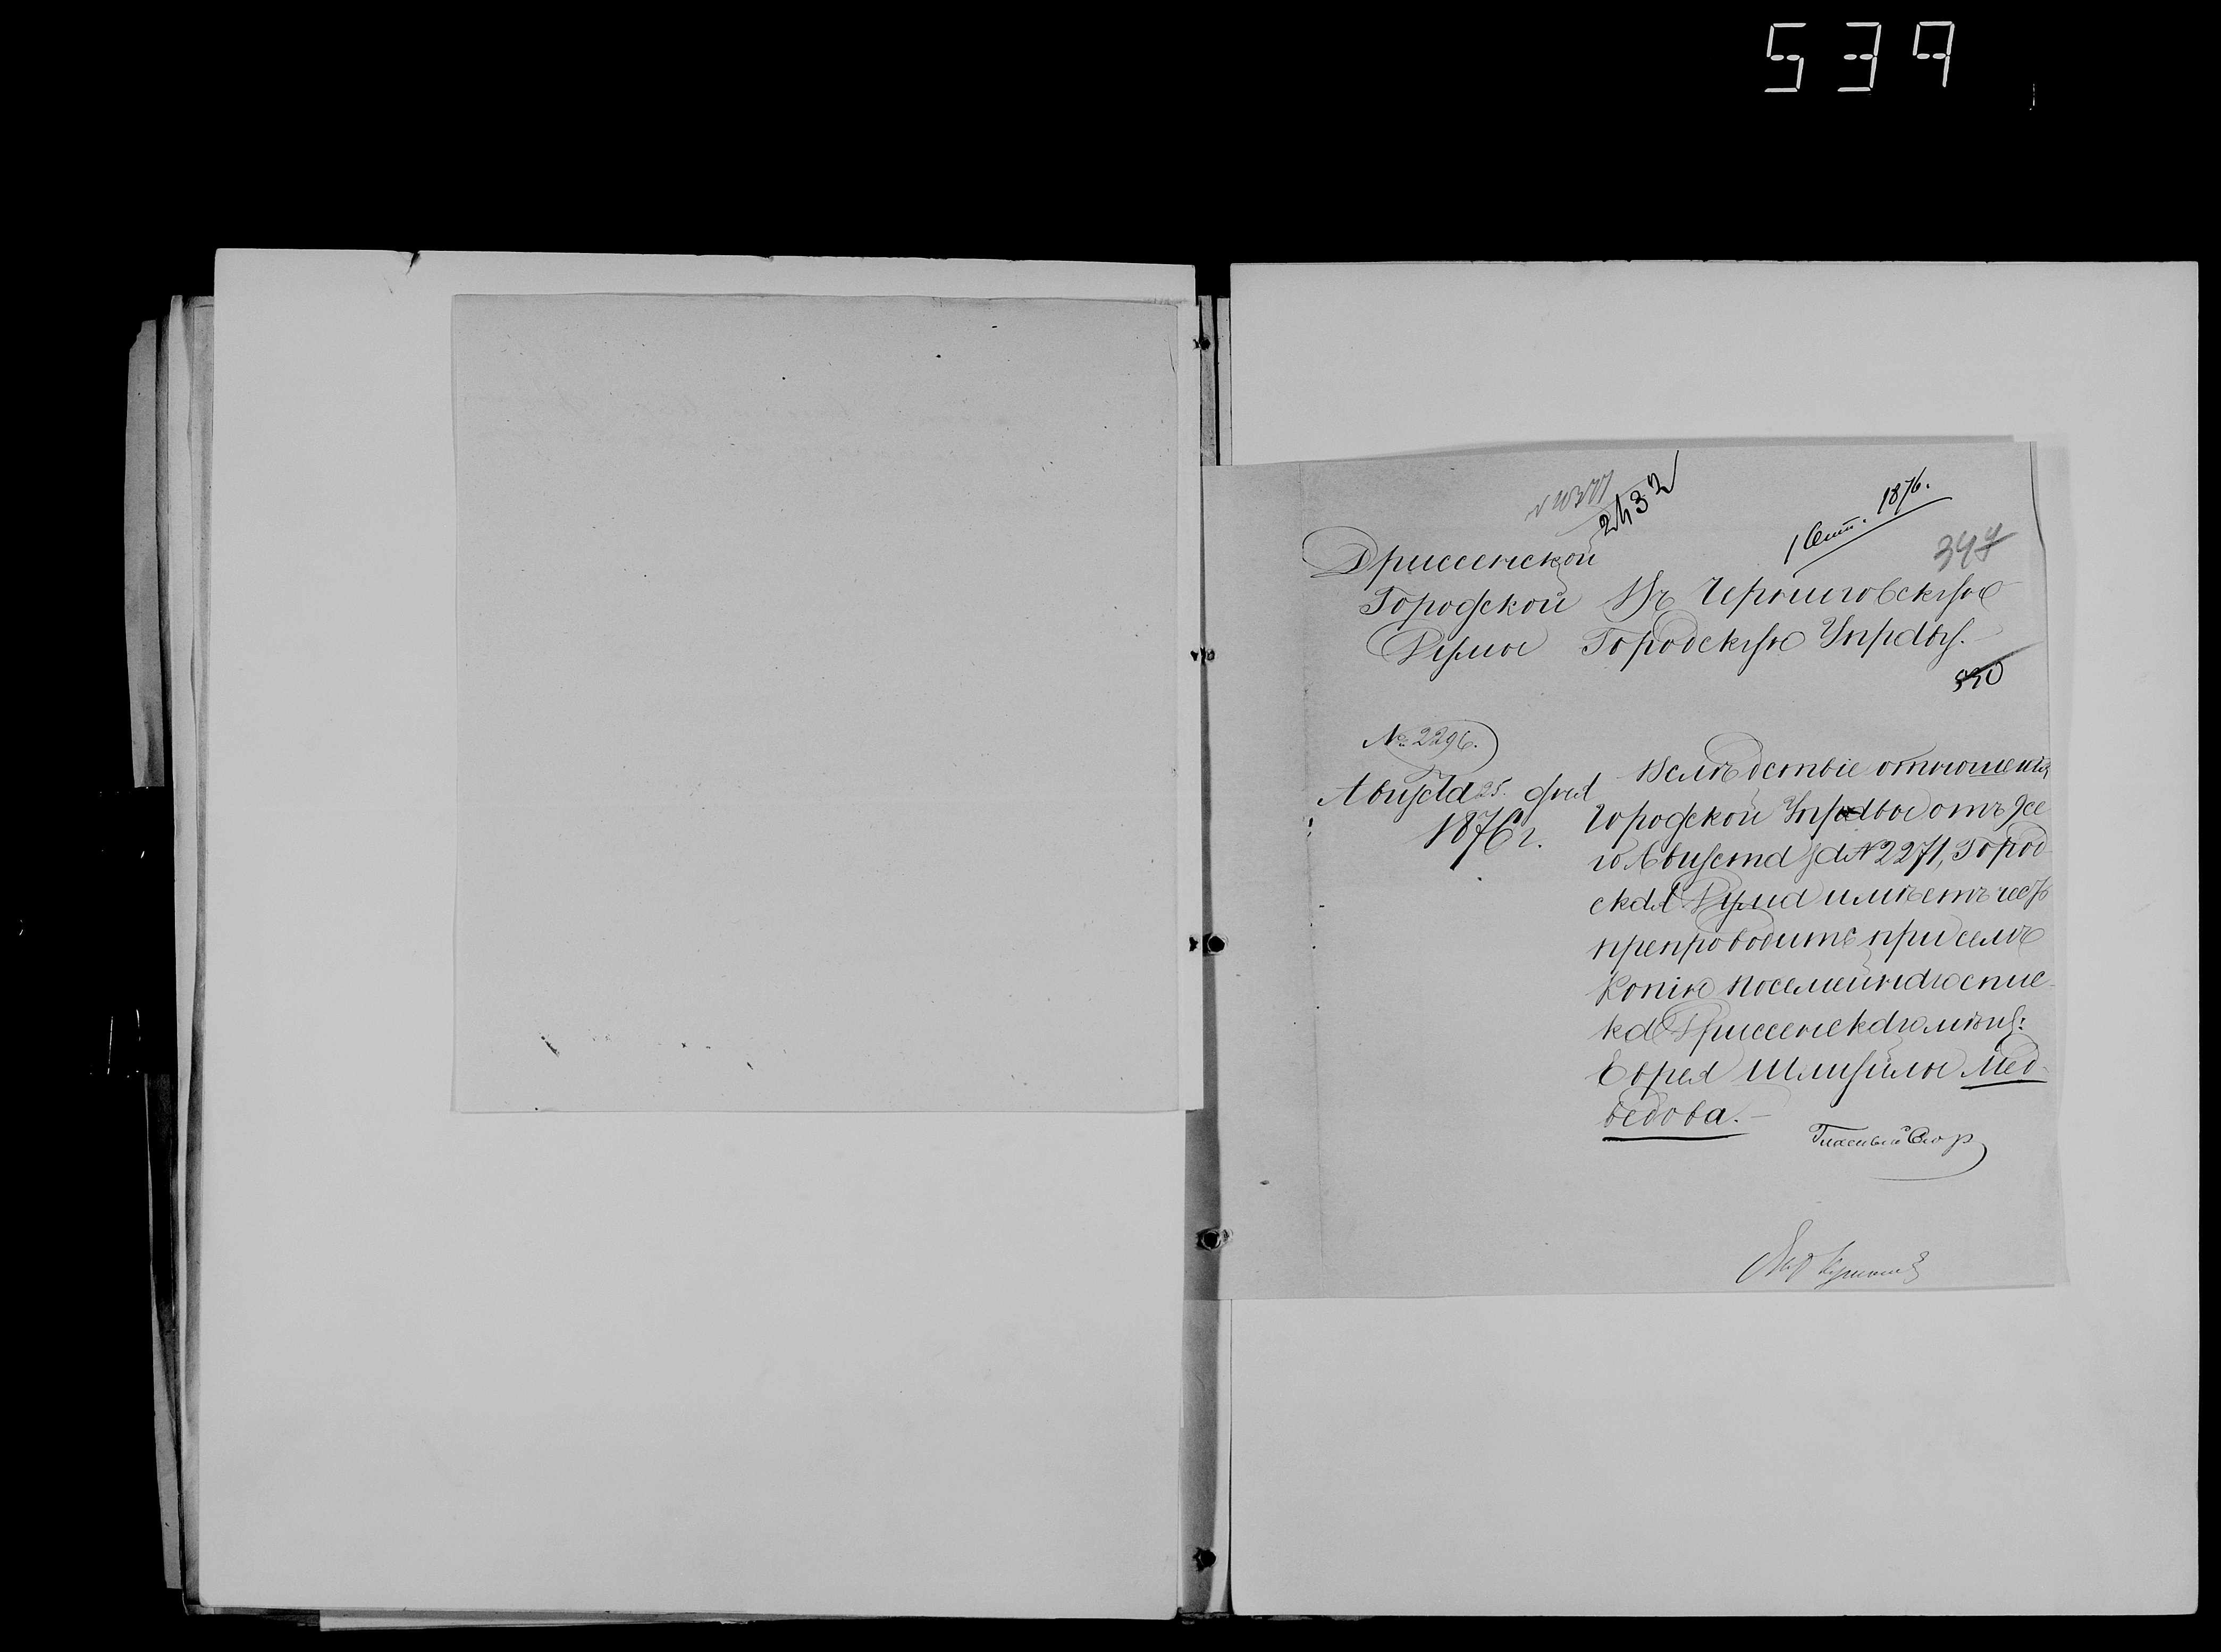 539
2432
1 Сент. 1876.
347
Дриссенской
Городской Въ Черниговскую
Думы Городскую Управу.
530
№ 2296.
Августа 25. дня
1876 г.
Вслѣдствіе отношенія
Городской Управы отъ
Августа за № 2271, Город-
ская Дума имѣетъ честь
препроводить при семъ
копію посемейнаго спис-
ка Дриссенскаго мѣщ:
Еврея Шлиомы Мед-
ведова.—
Гласный